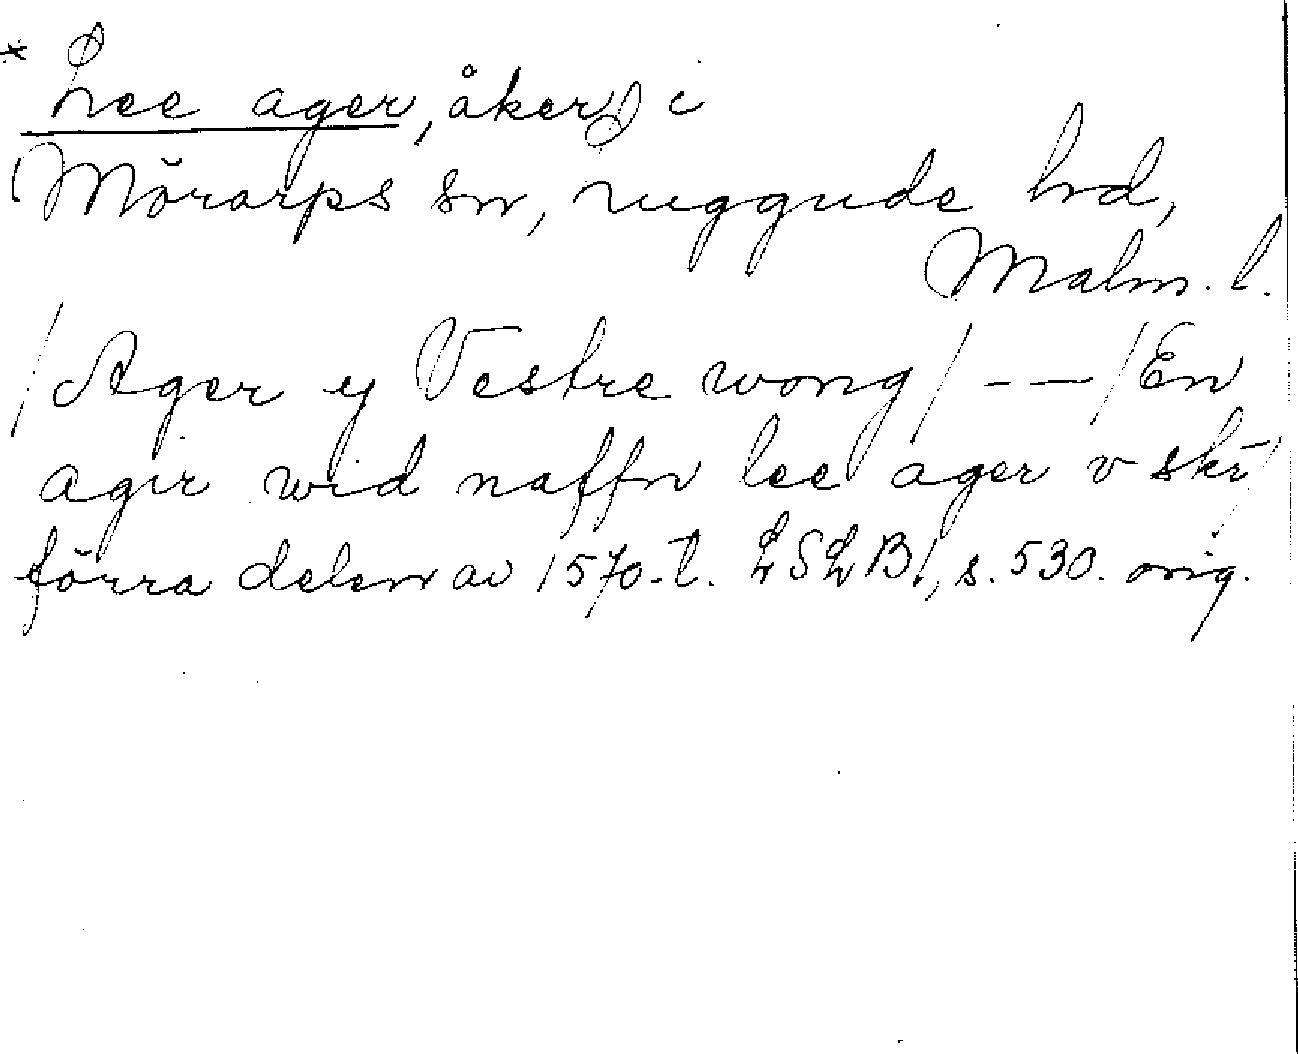 * Lee ager, åker i
Mörarps sn, Luggude hd,
Malm. l.
/Ager y Vestre wong/ -- /En
agir wid naffn lee ager v skr/
förra delen av 1570-t. LSLB1, s. 530. orig.